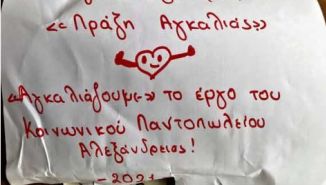 «Πράξη Αγκαλιάς»
«Αγκαλιάζουμε» το έργο του
Κοινωνικού Παντοπωλείου
Αλεξάνδρειας!
-2021